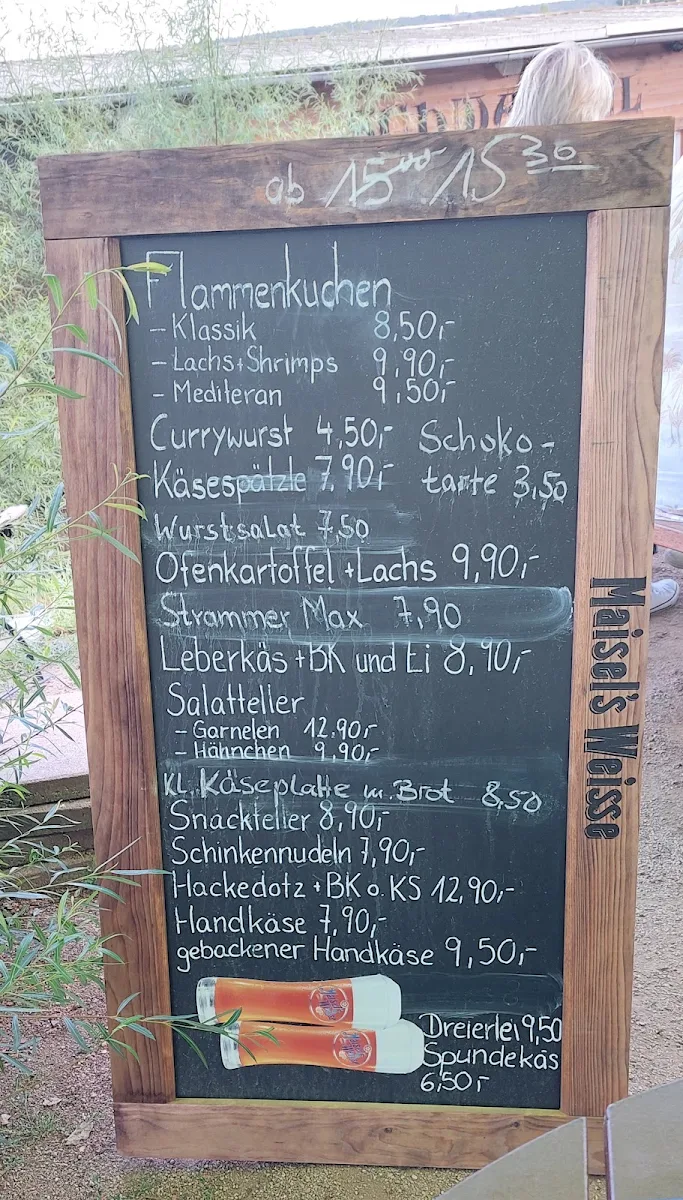 ab 15⁰⁰ 15³⁰
Flammenkuchen
- Klassik 8,50,-
- Lachs+Shrimps 9,90,-
- Mediteran 9,50,-
Currywurst 4,50,-
Käsespätzle 7,90,-
Schoko-
tarte 3,50
Wurstsalat 7,50
Ofenkartoffel +Lachs 9,90,-
Strammer Max 7,90
Leberkäs +BK und Ei 8,90,-
Salatteller
- Garnelen 12.90,-
- Hähnchen 9,90,-
Kl. Käseplatte m. Brot 8,50
Snackteller 8,90,-
Schinkennudeln 7,90,-
Hackedotz +BK o. KS 12,90,-
Handkäse 7,90,-
gebackener Handkäse 9,50,-
Dreierlei 9,50
Spundekäs
6,50,-
Maisel's Weisse